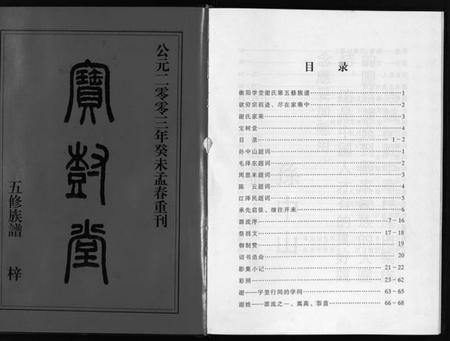 公元二零零三年癸未孟春重刊
寶樹堂
五修族譜 梓
目录
衡阳学堂谢氏第五修族谱 1
欲仰宗祖迹、尽在家乘中 2
谢氏家乘 3
宝树堂 4
目录 1-2
孙中山题词 1
毛泽东题词 2
周恩来题词 3
陈云题词 4
江泽民题词 5
承先启后、继往开来 6
源流序 7-16
祭祠文 17-18
御制赞 19
诏书追命 20
影集小记 21-22
彩照 23-62
谢——字里行间的学问 63-65
谢姓——源流之一、嵩高、黍苗 66-68